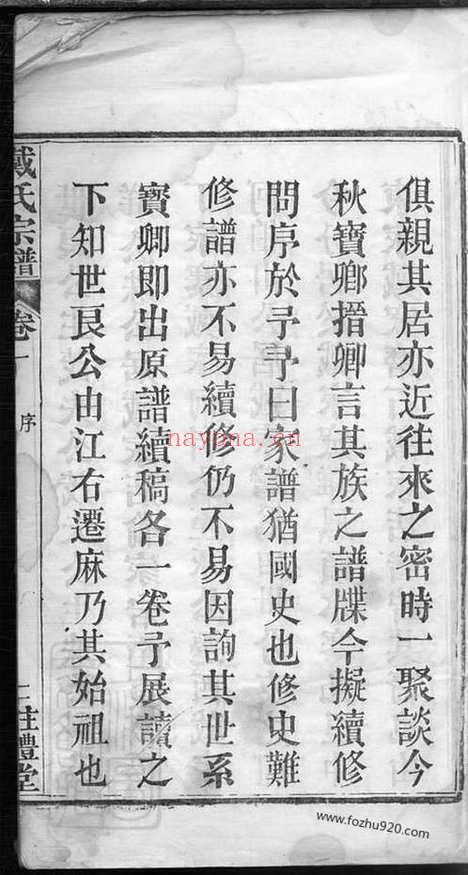 俱親其居亦近往來之密時一聚談今
秋寶鄉搢卿言其族之譜牒今擬續修
問序於予予曰家譜猶國史也修史難
修譜亦不易續修仍不易因詢其世系
寶卿即出原譜續稿各一卷予展讀之
下知世艮公由江右遷麻乃其始祖也
戴氏宗譜
卷一
序
二
註禮堂
nayona.cn
www.fozhu920.com